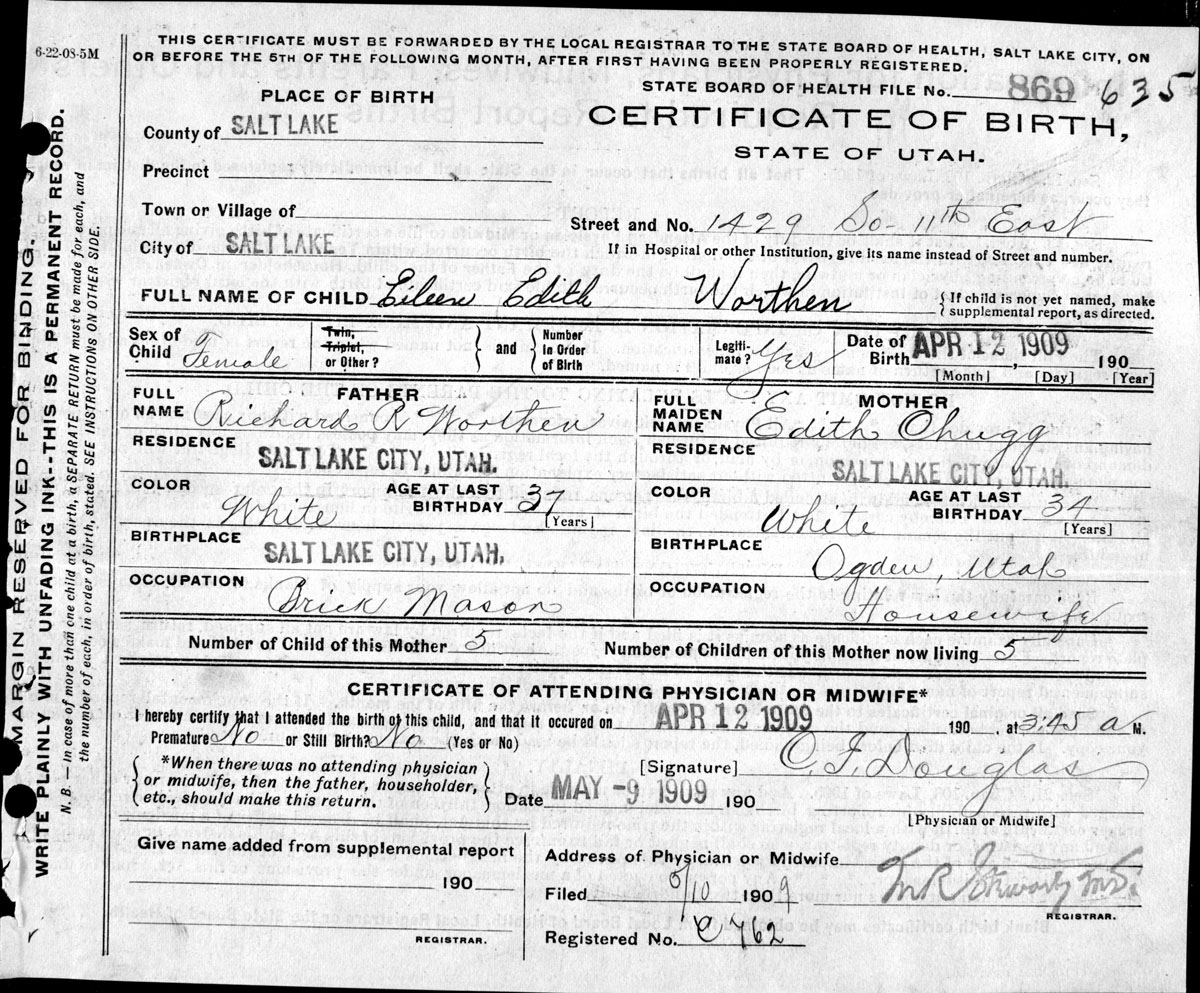 6-22-08-5M
THIS CERTIFICATE MUST BE FORWARDED BY THE LOCAL REGISTRAR TO THE STATE BOARD OF HEALTH, SALT LAKE CITY, ON
OR BEFORE THE 5TH OF THE FOLLOWING MONTH, AFTER FIRST HAVING BEEN PROPERLY REGISTERED.
STATE BOARD OF HEALTH FILE No. 869 635
PLACE OF BIRTH
CERTIFICATE OF BIRTH,
STATE OF UTAH.
County of SALT LAKE
Precinct
Town or Village of
Street and No. 1429 So- 11th East
City of SALT LAKE
If in Hospital or other Institution, give its name instead of Street and number.
FULL NAME OF CHILD Eileen Edith Worthen {If child is not yet named, make
supplemental report, as directed.
Sex of Child Female
Twin, Triplet, or Other?
and
Number In Order of Birth
Legitimate? Yes
Date of Birth APR 12 1909, 190
[Month] [Day] [Year]
FATHER
FULL NAME Richard R Worthen
RESIDENCE
SALT LAKE CITY, UTAH.
COLOR White
AGE AT LAST BIRTHDAY 37
[Years]
BIRTHPLACE
SALT LAKE CITY, UTAH.
OCCUPATION
Brick Mason
MOTHER
FULL MAIDEN NAME Edith Chugg
RESIDENCE
SALT LAKE CITY, UTAH.
COLOR White
AGE AT LAST BIRTHDAY 34
[Years]
BIRTHPLACE
Ogden, Utah
OCCUPATION
Housewife
Number of Child of this Mother 5 Number of Children of this Mother now living 5
CERTIFICATE OF ATTENDING PHYSICIAN OR MIDWIFE*
I hereby certify that I attended the birth of this child, and that it occured on APR 12 1909 190 , at 3:45 a M.
Premature No or Still Birth? No (Yes or No)
{*When there was no attending physician
or midwife, then the father, householder,
etc., should make this return.}
[Signature] C. I. Douglas
Date MAY -9 1909 190
[Physician or Midwife]
Give name added from supplemental report
190
REGISTRAR.
Address of Physician or Midwife
Filed 5/10 1909
REGISTRAR.
Registered No. C 762
MARGIN RESERVED FOR BINDING.
WRITE PLAINLY WITH UNFADING INK--THIS IS A PERMANENT RECORD.
N. B. — In case of more than one child at a birth, a SEPARATE RETURN must be made for each, and
the number of each, in order of birth, stated. SEE INSTRUCTIONS ON OTHER SIDE.